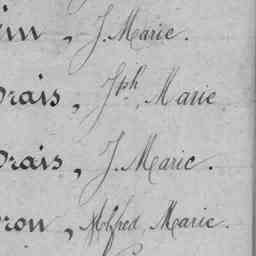 in, J. Marie.
rais, Jph Marie
rais, J. Marie.
ron, Alfred Marie.